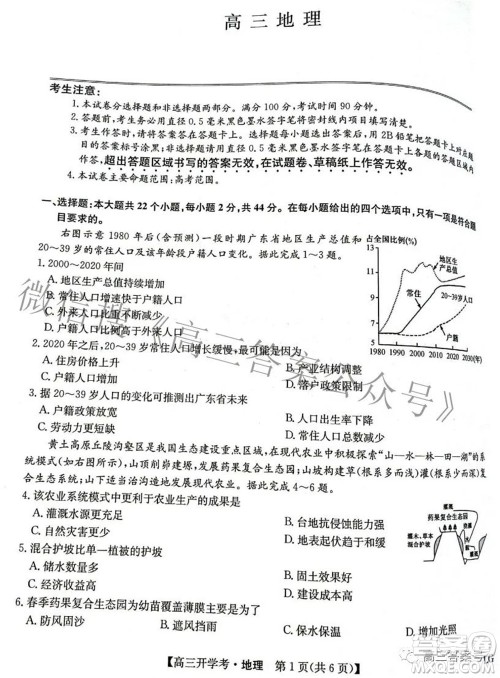 高三地理
考生注意：
1.本试卷分选择题和非选择题两部分。满分100分，考试时间90分钟。
2.答题前，考生务必用直径0.5毫米黑色墨水签字笔将密封线内项目填写清楚。
3.考生作答时，请将答案答在答题卡上。选择题每小题选出答案后，用2B铅笔把答题卡上对应题目的答案标号涂黑；非选择题请用直径0.5毫米黑色墨水签字笔在答题卡上各题的答题区域内作答，超出答题区域书写的答案无效，在试题卷、草稿纸上作答无效。
4.本卷主要命题范围：高考范围。
一、选择题：本大题共22个小题，每小题2分，共44分。在每小题给出的四个选项中，只有一项是符合题目要求的。
右图示意1980年后(含预测)一段时期广东省地区生产总值和20～39岁的常住人口及该年龄段户籍人口变化。据此完成1～3题。
占全国比例(%)
13
11
9
7
5
3
地区生产总值
常住
20～39岁人口
户籍
1980 1990 2000 2010 2020 2030(年)
1.2000～2020年间
A.地区生产总值持续增加
B.常住人口增速快于户籍人口
C.常住人口比重不断减小
D.户籍人口比例高于外来人口
2.2020年之后，20～39岁常住人口增长缓慢，最可能是因为
A.住房价格上升
B.产业结构调整
C.户籍人口增加
D.落户政策限制
3.据20～39岁人口的变化可推测出广东省未来
A.户籍政策放宽
B.人口出生率下降
C.劳动力短缺
D.流动人口数减少
黄土高原丘陵沟壑区是我国生态建设重点区域，在现代农业中积极探索“山—水—林—田—湖”的系统模式(如下图)，山顶削峁建塬，发展现代农业和果园；山坡构建草灌(根系多而浅)与乔木(根系深)混合生态系统；山下治沟造地发展沟道农业。据此完成4～6题。
灌溉
药果复合生态园
灌木、草本
混合护坡
4.该农业系统模式中更利于农业生产的成果是
A.灌溉水源更充足
B.台地抗侵蚀能力强
C.自然灾害减少
D.土壤肥力提高
5.混合护坡比单一植被的护坡
A.储水数量多
C.经济收益高
6.春季药果复合生态园为幼苗覆盖薄膜主要是为了
A.防风固沙
D.增加光照
【高三开学考·地理 第1页(共6页)】
微信搜《高三答案公众号》